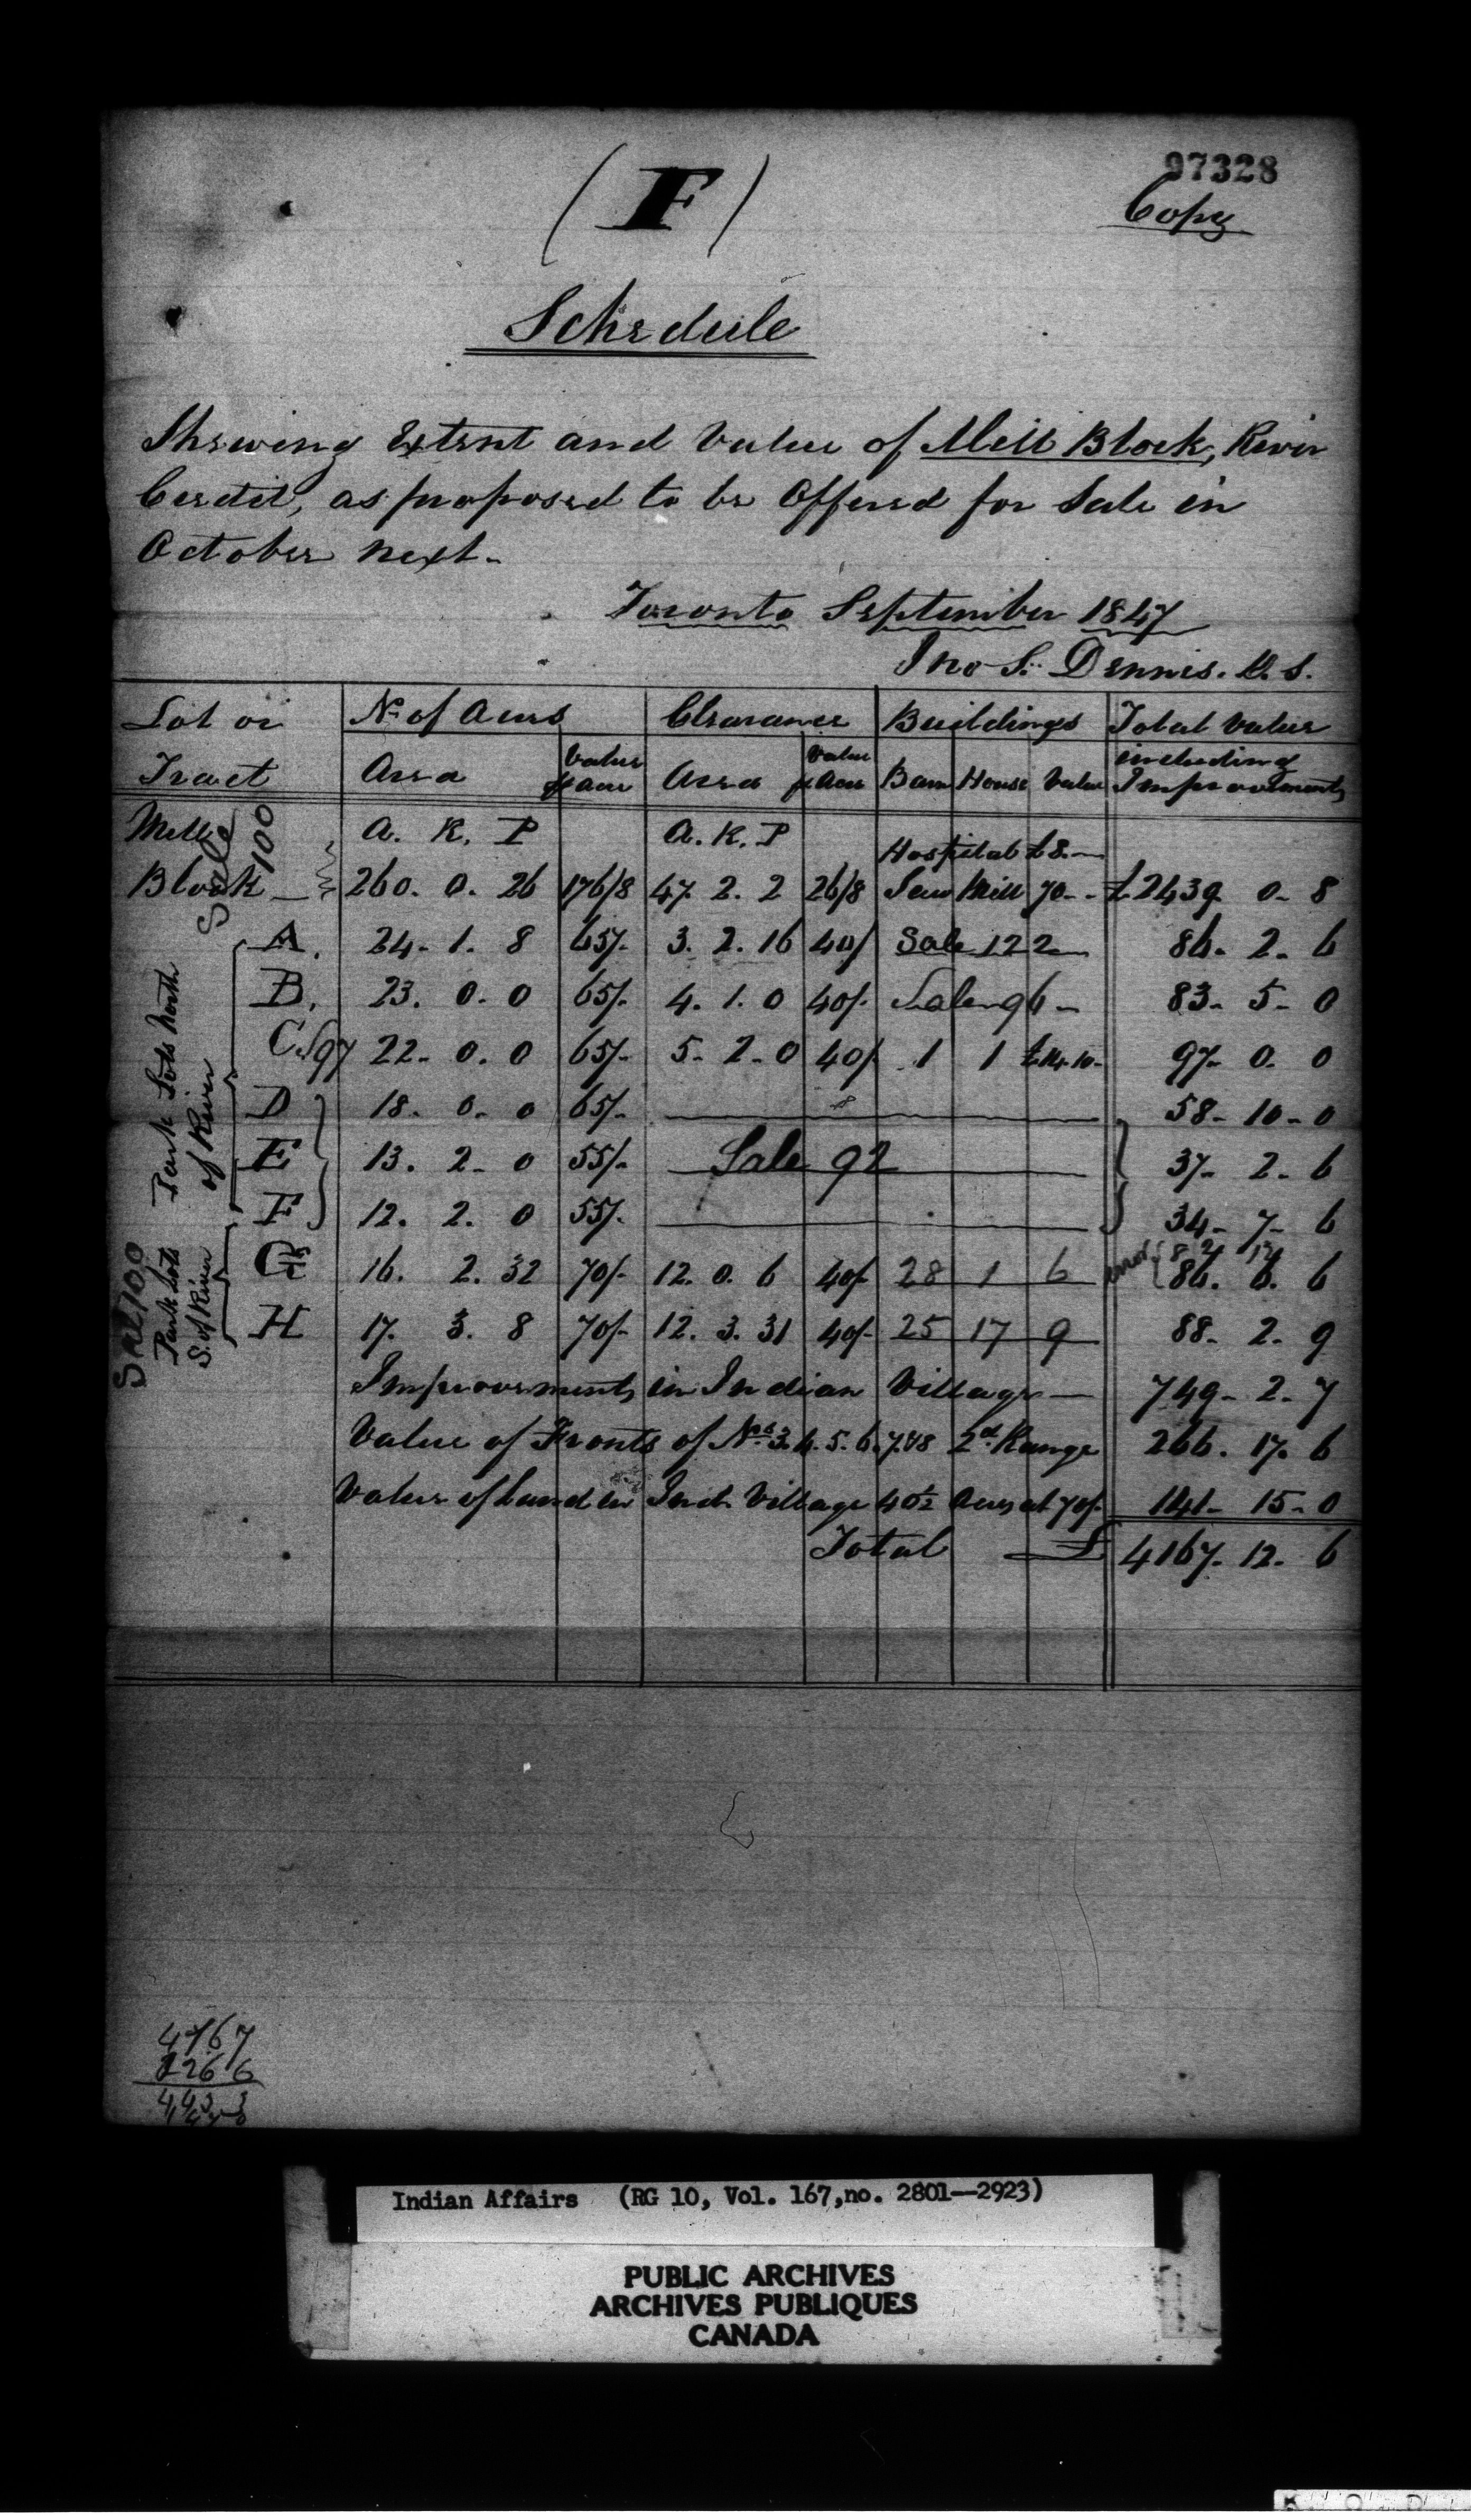 97328
(F)
Copy
Schedule
Shewing Extent and Value of Mill Block, River
Credit, as proposed to be Offered for Sale in
October next.
Toronto September 1847
Jno S. Dennis. D. S.
Lot or Tract | No of Acres | Clearance | Buildings | Total Value including Improvements
Area | Value p Acre | Area | Value p Acre | Barn | House | Value
A. R. P | A. R. P
Hospital £8.—
Mill Block — Sale 100 | 260. 0. 26 | 176/8 | 47. 2. 2 | 26/8 | Saw Mill 70 - - | £2439. 0. 8
Park Lots North of River
A. | 24. 1. 8 | 65/- | 3. 2. 16 | 40/ | Sale 122 | 86. 2. 6
B. | 23. 0. 0 | 65/- | 4. 1. 0 | 40/- | Sale 96 - | 83. 5. 0
C. S97 | 22. 0. 0 | 65/- | 5. 2. 0 | 40/ | 1 | 1 | £14.10- | 97. 0. 0
D | 18. 0. 0 | 65/- | 58. 10. 0
E | 13. 2. 0 | 55/- | Sale 92 | 37. 2. 6
F | 12. 2. 0 | 55/- | 34. 7. 6
Sale 100
Park Lots S. of River
G | 16. 2. 32 | 70/- | 12. 0. 6 | 40/- | 28 | 1 | 6 | error | 86. 6
H | 17. 3. 8 | 70/- | 12. 3. 31 | 40/- | 25 | 17 | 9 | 88. 2. 9
Improvements in Indian Village — 749. 2. 7
Value of Fronts of Nos 3. 4. 5. 6. 7. & 8 2d Range 266. 17. 6
Value of Land in Ind. Village 40½ Acres at 70/- 141. 15. 0
Total £ 4167. 12. 6
4167
266
Indian Affairs (RG 10, Vol. 167, no. 2801—2923)
PUBLIC ARCHIVES
ARCHIVES PUBLIQUES
CANADA